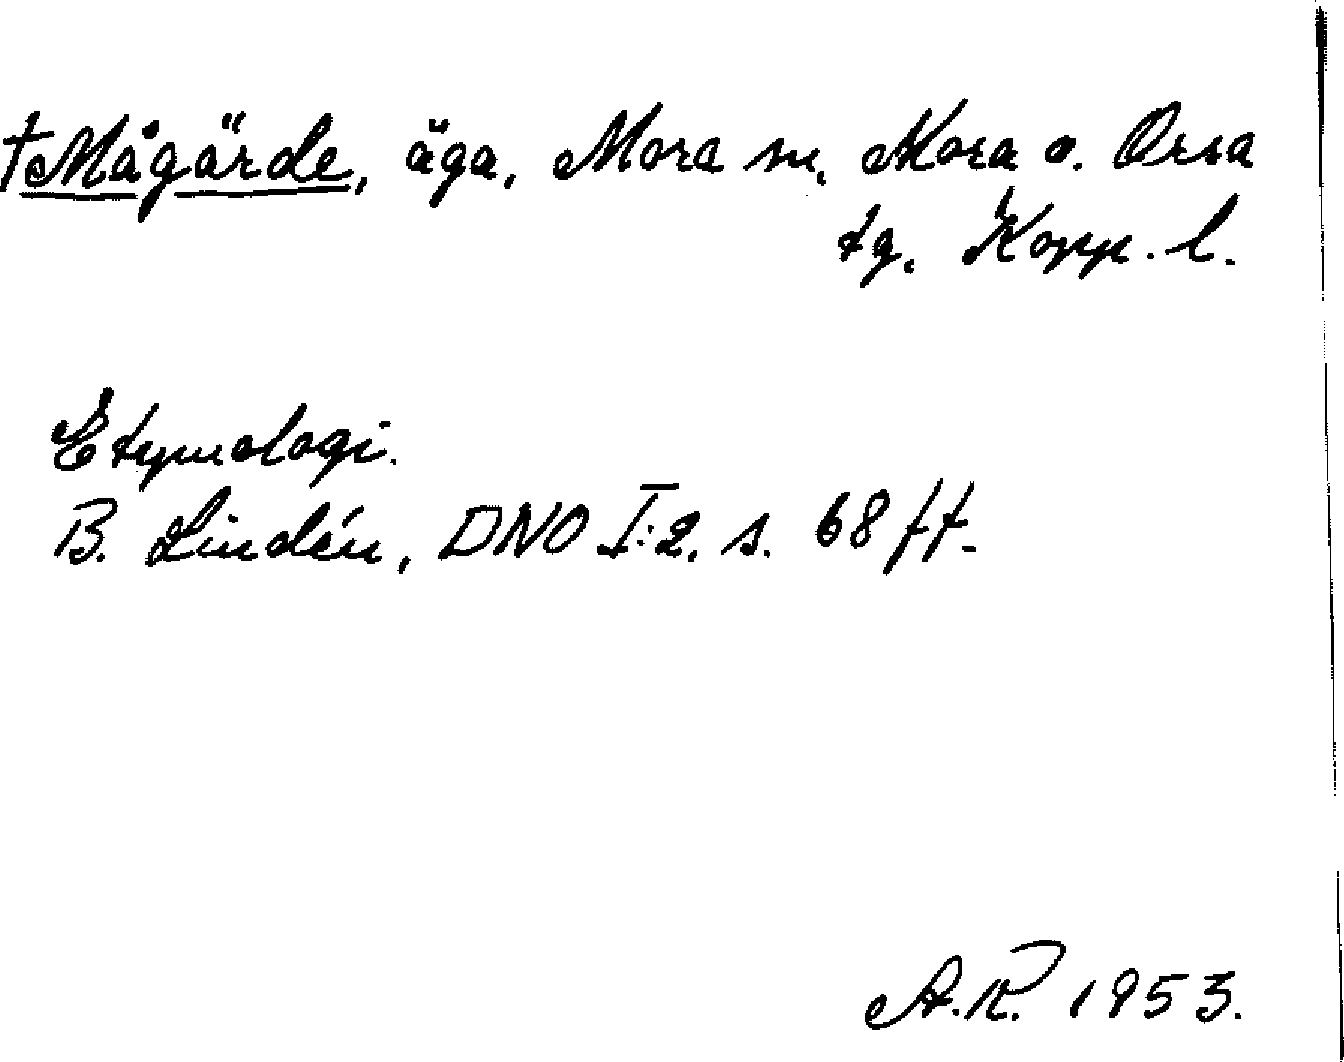 †Mågärde, äga, Mora sn, Mora o. Orsa
tg. Kopp. l.
Etymologi.
B. Lindén, DNO I:2. s. 68 ff.
A.R. 1953.